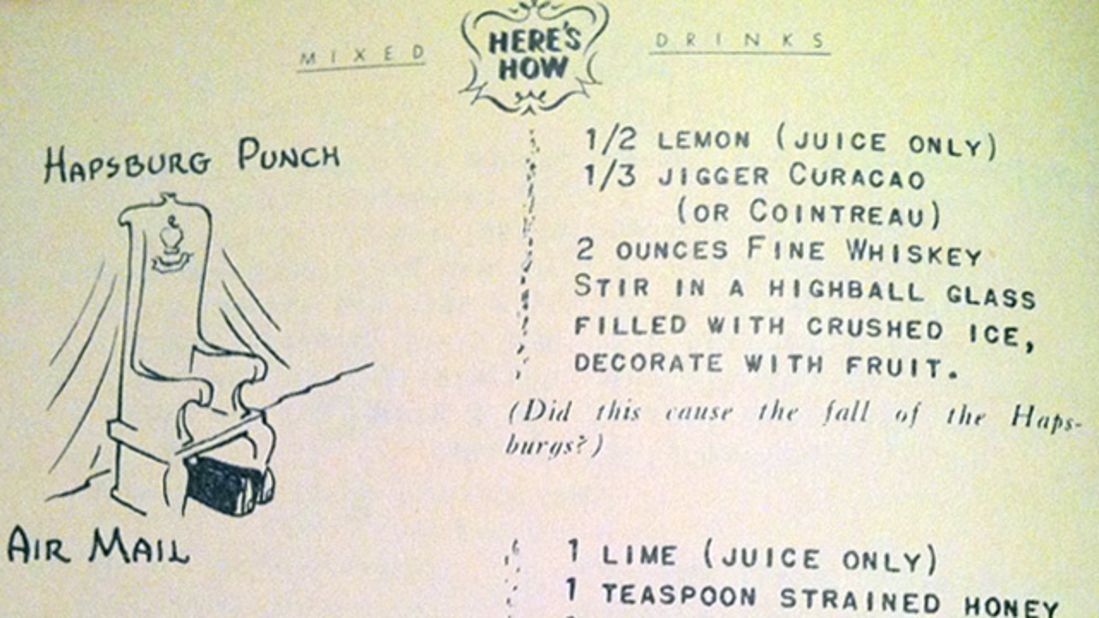 MIXED HERE'S HOW DRINKS
HAPSBURG PUNCH
1/2 LEMON (JUICE ONLY)
1/3 JIGGER CURACAO
(OR COINTREAU)
2 OUNCES FINE WHISKEY
STIR IN A HIGHBALL GLASS
FILLED WITH CRUSHED ICE,
DECORATE WITH FRUIT.
(Did this cause the fall of the Haps-
burgs?)
AIR MAIL
1 LIME (JUICE ONLY)
1 TEASPOON STRAINED HONEY